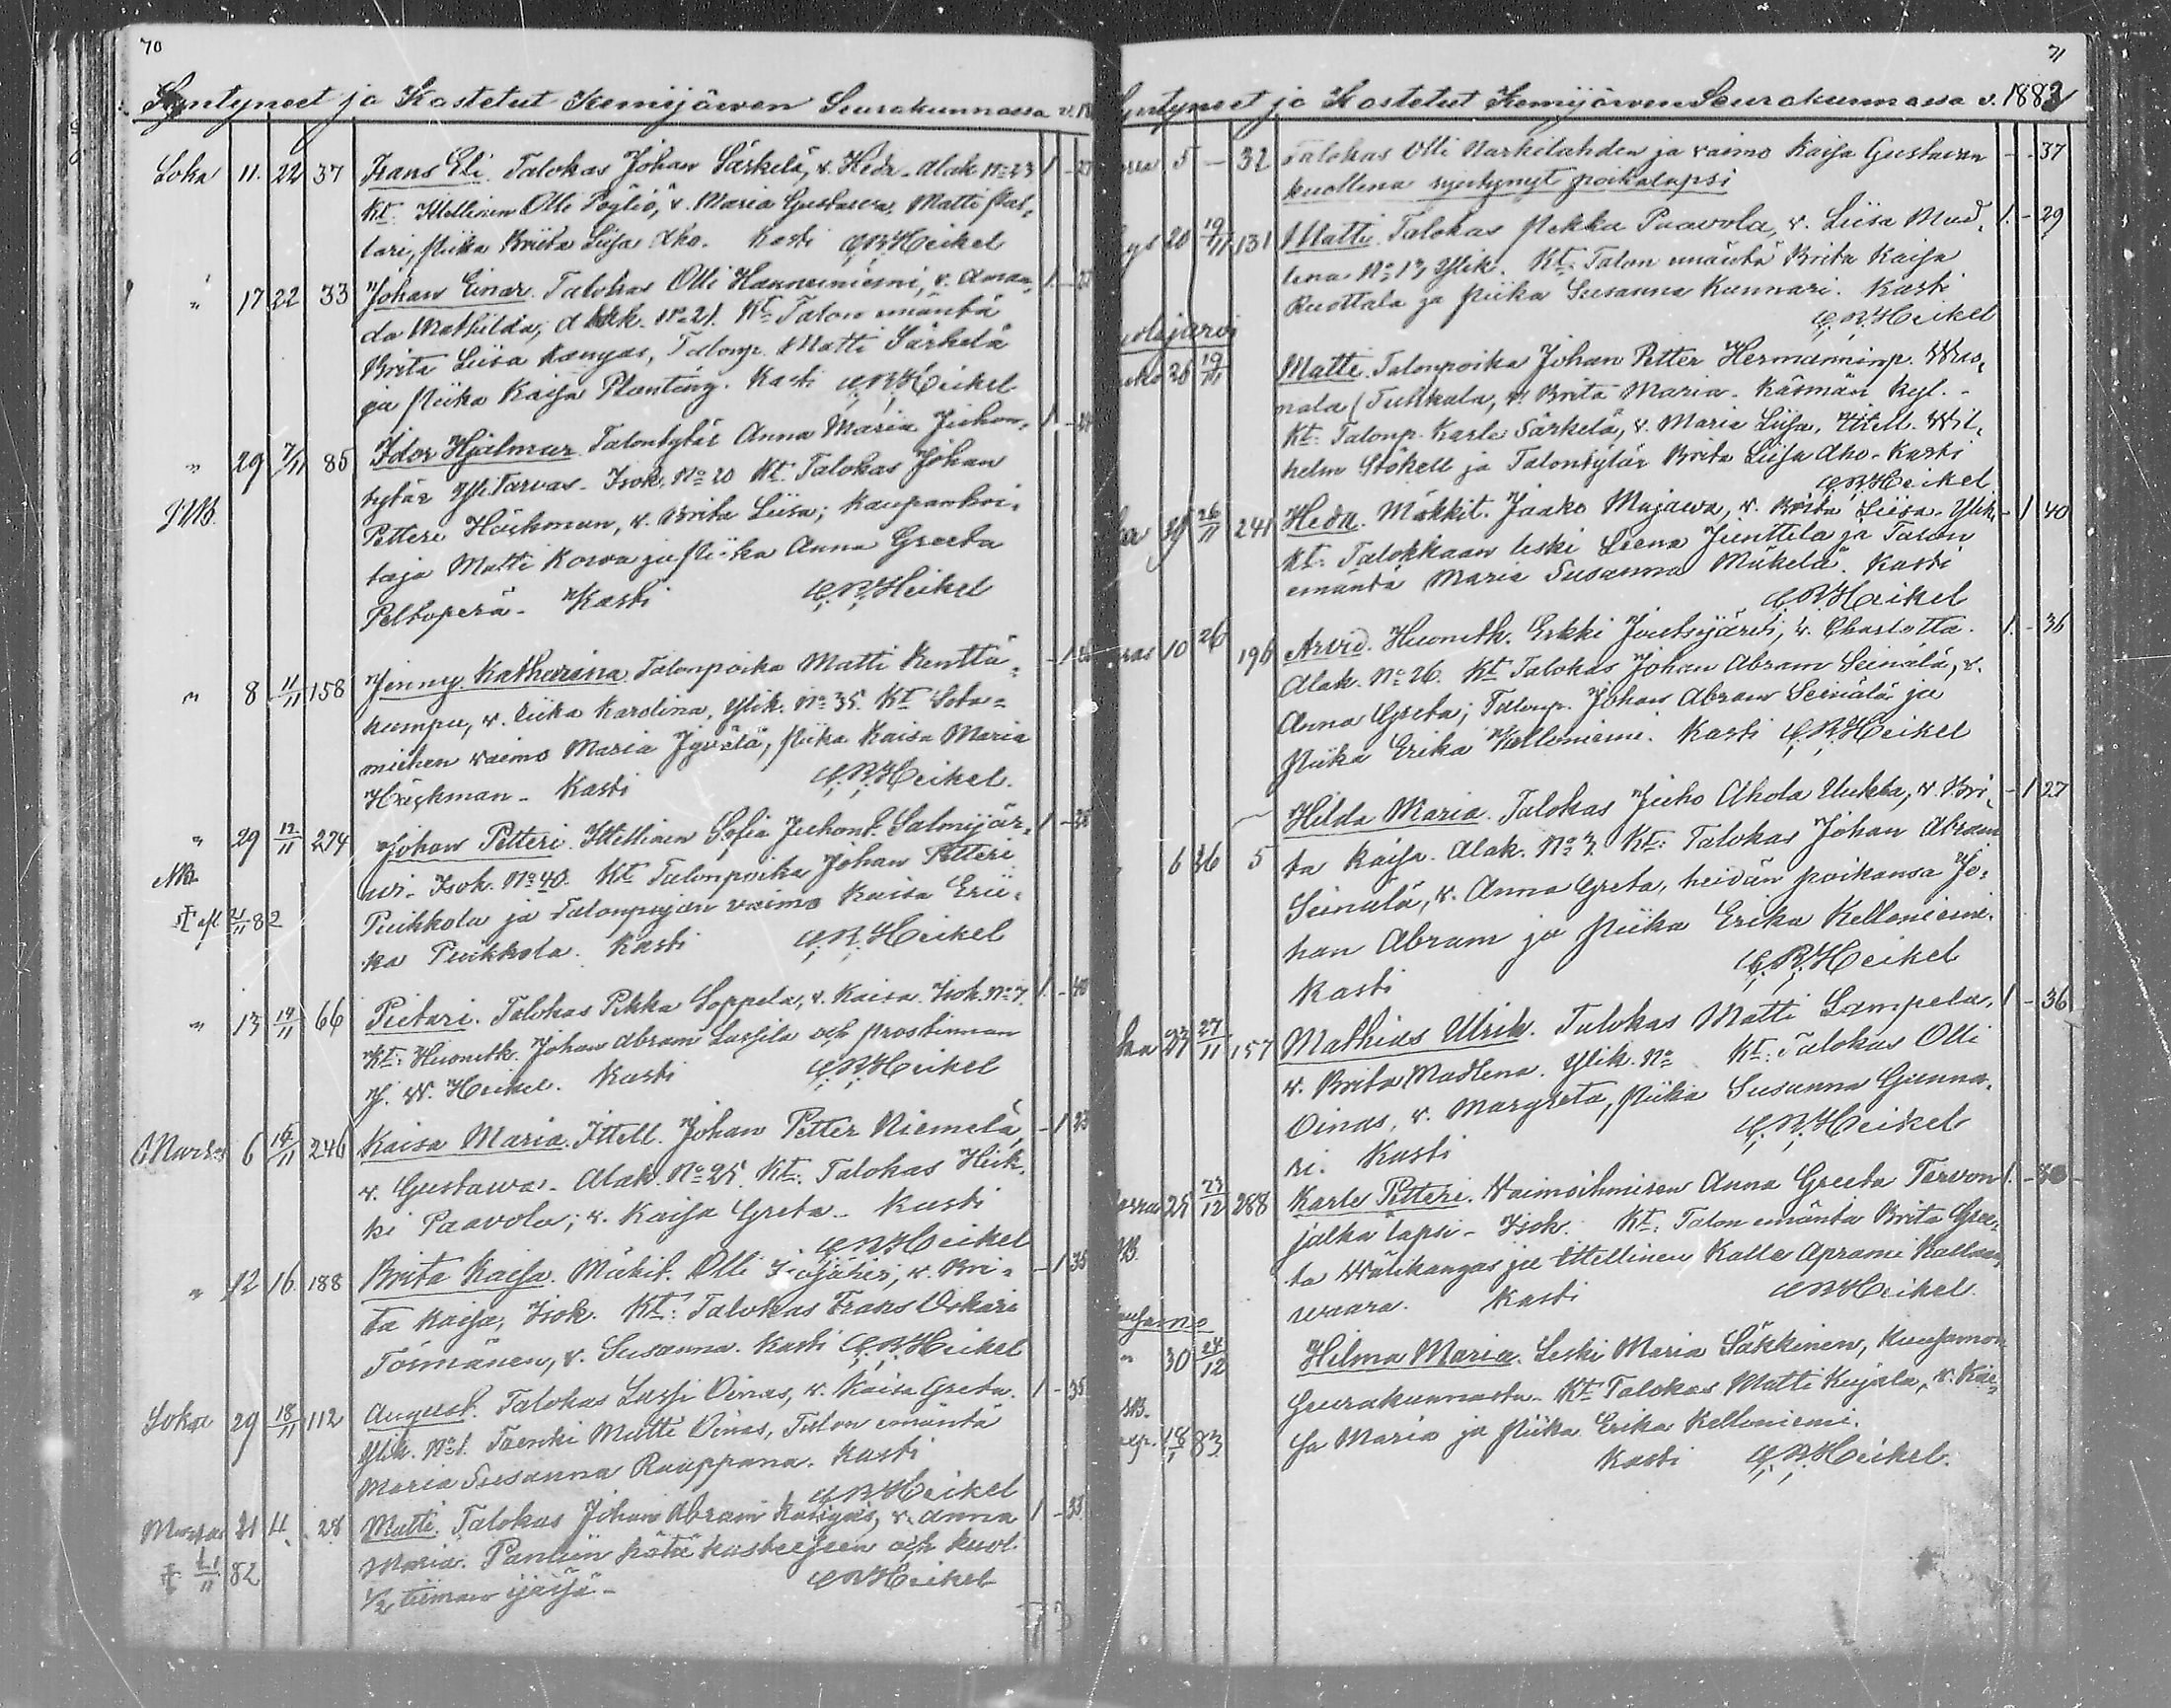 70
Syntyneet ja Kastetut Kemijärven Seurakunnassa v. 18
Loka 11. 22 37 Frans Eli. Talokas Johan Särkelä, v. Heda. Alak. No 23 1 - 27
Kt: Ittellinen Olli Pöyliö, v. Maria Gustava, Matti
tari, Piika Briita Liisa Aho. Kasti C.R.Heikel
" 17 22 33 Johan Einar. Talokas Olli Hanneniemi, v. Aman, 1 -
da Mathilda, Alak. No 21. Kt: Talon emäntä
Brita Liisa Kangas, Talonp. Matti Särkelä
ja Piika Kaisa Planting. Kasti C.R.Heikel
" 29 7/11 85 Idor Hjalmar. Talontytär Anna Maria Juhon, 1 -
tytär YliTarvas. Isok. No 20 Kt: Talokas Johan
Petteri Höckman, v. Brita Liisa; Kaupanhoi,
taja Matti Korva ja Piika Anna Greeta
Peltoperä. Kasti C.R.Heikel
" 8 11/11 158 Jenny Katharina. Talonpoika Matti Kenttä= - 1
kumpu, v. Riika Karolina, Ylik. No 35. Kt: Sota=
miehen vaimo Maria Jyrälä, Piika Kaisa Maria
Höyhman. Kasti C.R.Heikel.
" 29 12/11 274 Johan Petteri. Ittellinen Sofia Juhont. Salmijär, 1 -
NB.
vi. Isok. No 40. Kt: Talonpoika Johan Petteri
21/11 82 Puikkola ja Talonpojan vaimo Kaisa Erii,
ka Puikkola. Kasti C.R.Heikel
" 13 14/11 66 Pietari. Talokas Pekka Soppela, v. Kaisa. Isok. No 7. 1. - 40
Kt: Huoneth. Johan Abram Lassila och prostinnan
J. W. Heikel. Kasti C.R.Heikel
Marras 6 15/11 246 Kaisa Maria. Ittell. Johan Petter Niemelä, - 1 23
v. Gustawa. Alak. No 25. Kt: Talokas Heik,
ki Paavola; v. Kaisa Greta. Kasti
C.R.Heikel
" 12 16. 188 Brita Kaisa. Mäkit. Olli, v. Bri= - 1 35
ta Kaisa, Isok. Kt: Talokas Frans Oskari
Törmänen, v. Susanna. Kasti C.R.Heikel
Loka 29 18/11 112 August. Talokas Lassi Oinas, v. Kaisa Greta. 1 - 35
Ylik. No 1. Taenki Matti Oinas, Talon emäntä
Maria Susanna Ruuppana. Kasti
C.R.Heikel
Marras 21 28 Matti. Talokas Johan Abram Kangas, v. Anna 1 - 33
Maria. Pantiin hätä kasteeseen och kuol.
82 1/2 tiiman ijässä. C.R.Heikel
71
Syntyneet ja Kastetut Kemijärven Seurakunnassa v. 1882
5 - 32 Talokas Olli Narkilahden ja vaimo Kaisa Gustavan - - 37
kuollena syntynyt poikalapsi
20 19/11 131 Matti. Talokas Pekka Paavola, v. Liisa Mad, 1. - 29
lena No 13 Ylik. Kt: Talon emäntä Brita Kaisa
Ruottala ja Piika Susanna Kunnari. Kasti
C.R.Heikel
26 19/11 Matti. Talonpoika Johan Petter Hermanninp.
nala (Tuhkala, v. Brita Maria. Käsmän kyl.
Kt: Talonp. Karle Särkelä, v. Maria Liisa, Ittell. Wil,
helm Stökell ja Talontytär Brita Liisa Aho. Kasti
C.R.Heikel
26/11 241 Heda. Mäkkit. Jaako Majawa, v. Brita Liisa. Ylik. - 1 40
Kt: Talokkaan leski Leena Junttila ja Talon
emäntä Maria Susanna Mäkelä. Kasti
C.R.Heikel
10 26 196 Arvid. Huoneth. Erkki Joutsijärvi, v. Charlotta. 1. - 36
Alak. No 26. Kt: Talokas Johan Abram Seinälä, v.
Anna Greta; Talonp. Johan Abram Seinälä ja
Piika Erika Kelloniemi. Kasti C.R.Heikel
6 26 5 Hilda Maria. Talokas Juho Ahola Uukka, v. Bri, - 1 27
ta Kaisa. Alak. No 3. Kt: Talokas Johan Abram
Seinälä, v. Anna Greta, heidän poikansa Jo,
han Abram ja Piika Erika Kelloniemi.
Kasti C.R.Heikel
27/11 157 Mathias Ulrik. Talokas Matti Lampela, 1 - 36
v. Brita Madlena. Ylik. No Kt: Talokas Olli
Oinas, v. Margreta, Piika Susanna Gunna,
ri. Kasti C.R.Heikel
25 23/12 288 Karle Petteri. Vaimoihmisen Anna Greeta Tervon 1. - 40
jalka lapsi. Isok. Kt: Talon emäntä Brita Gree,
ta Wälikangas ja Ittellinen Kalle Aprami Kallan,
waara. Kasti C.R.Heikel.
30 24/12 Hilma Maria. Leski Maria Säkkinen, Kuusamon
Seurakunnasta. Kt: Talokas Matti Kujala, v. Kai,
sa Maria ja Piika Erika Kelloniemi.
Kasti C.R.Heikel.